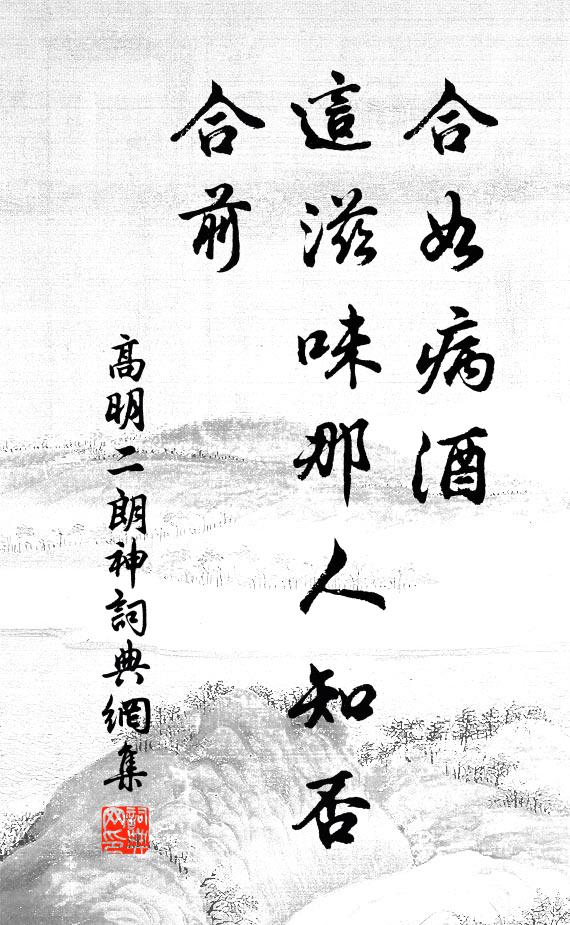 合如病酒
這滋味那人知否
合前
高明二郎神詞典網集
詞典网印